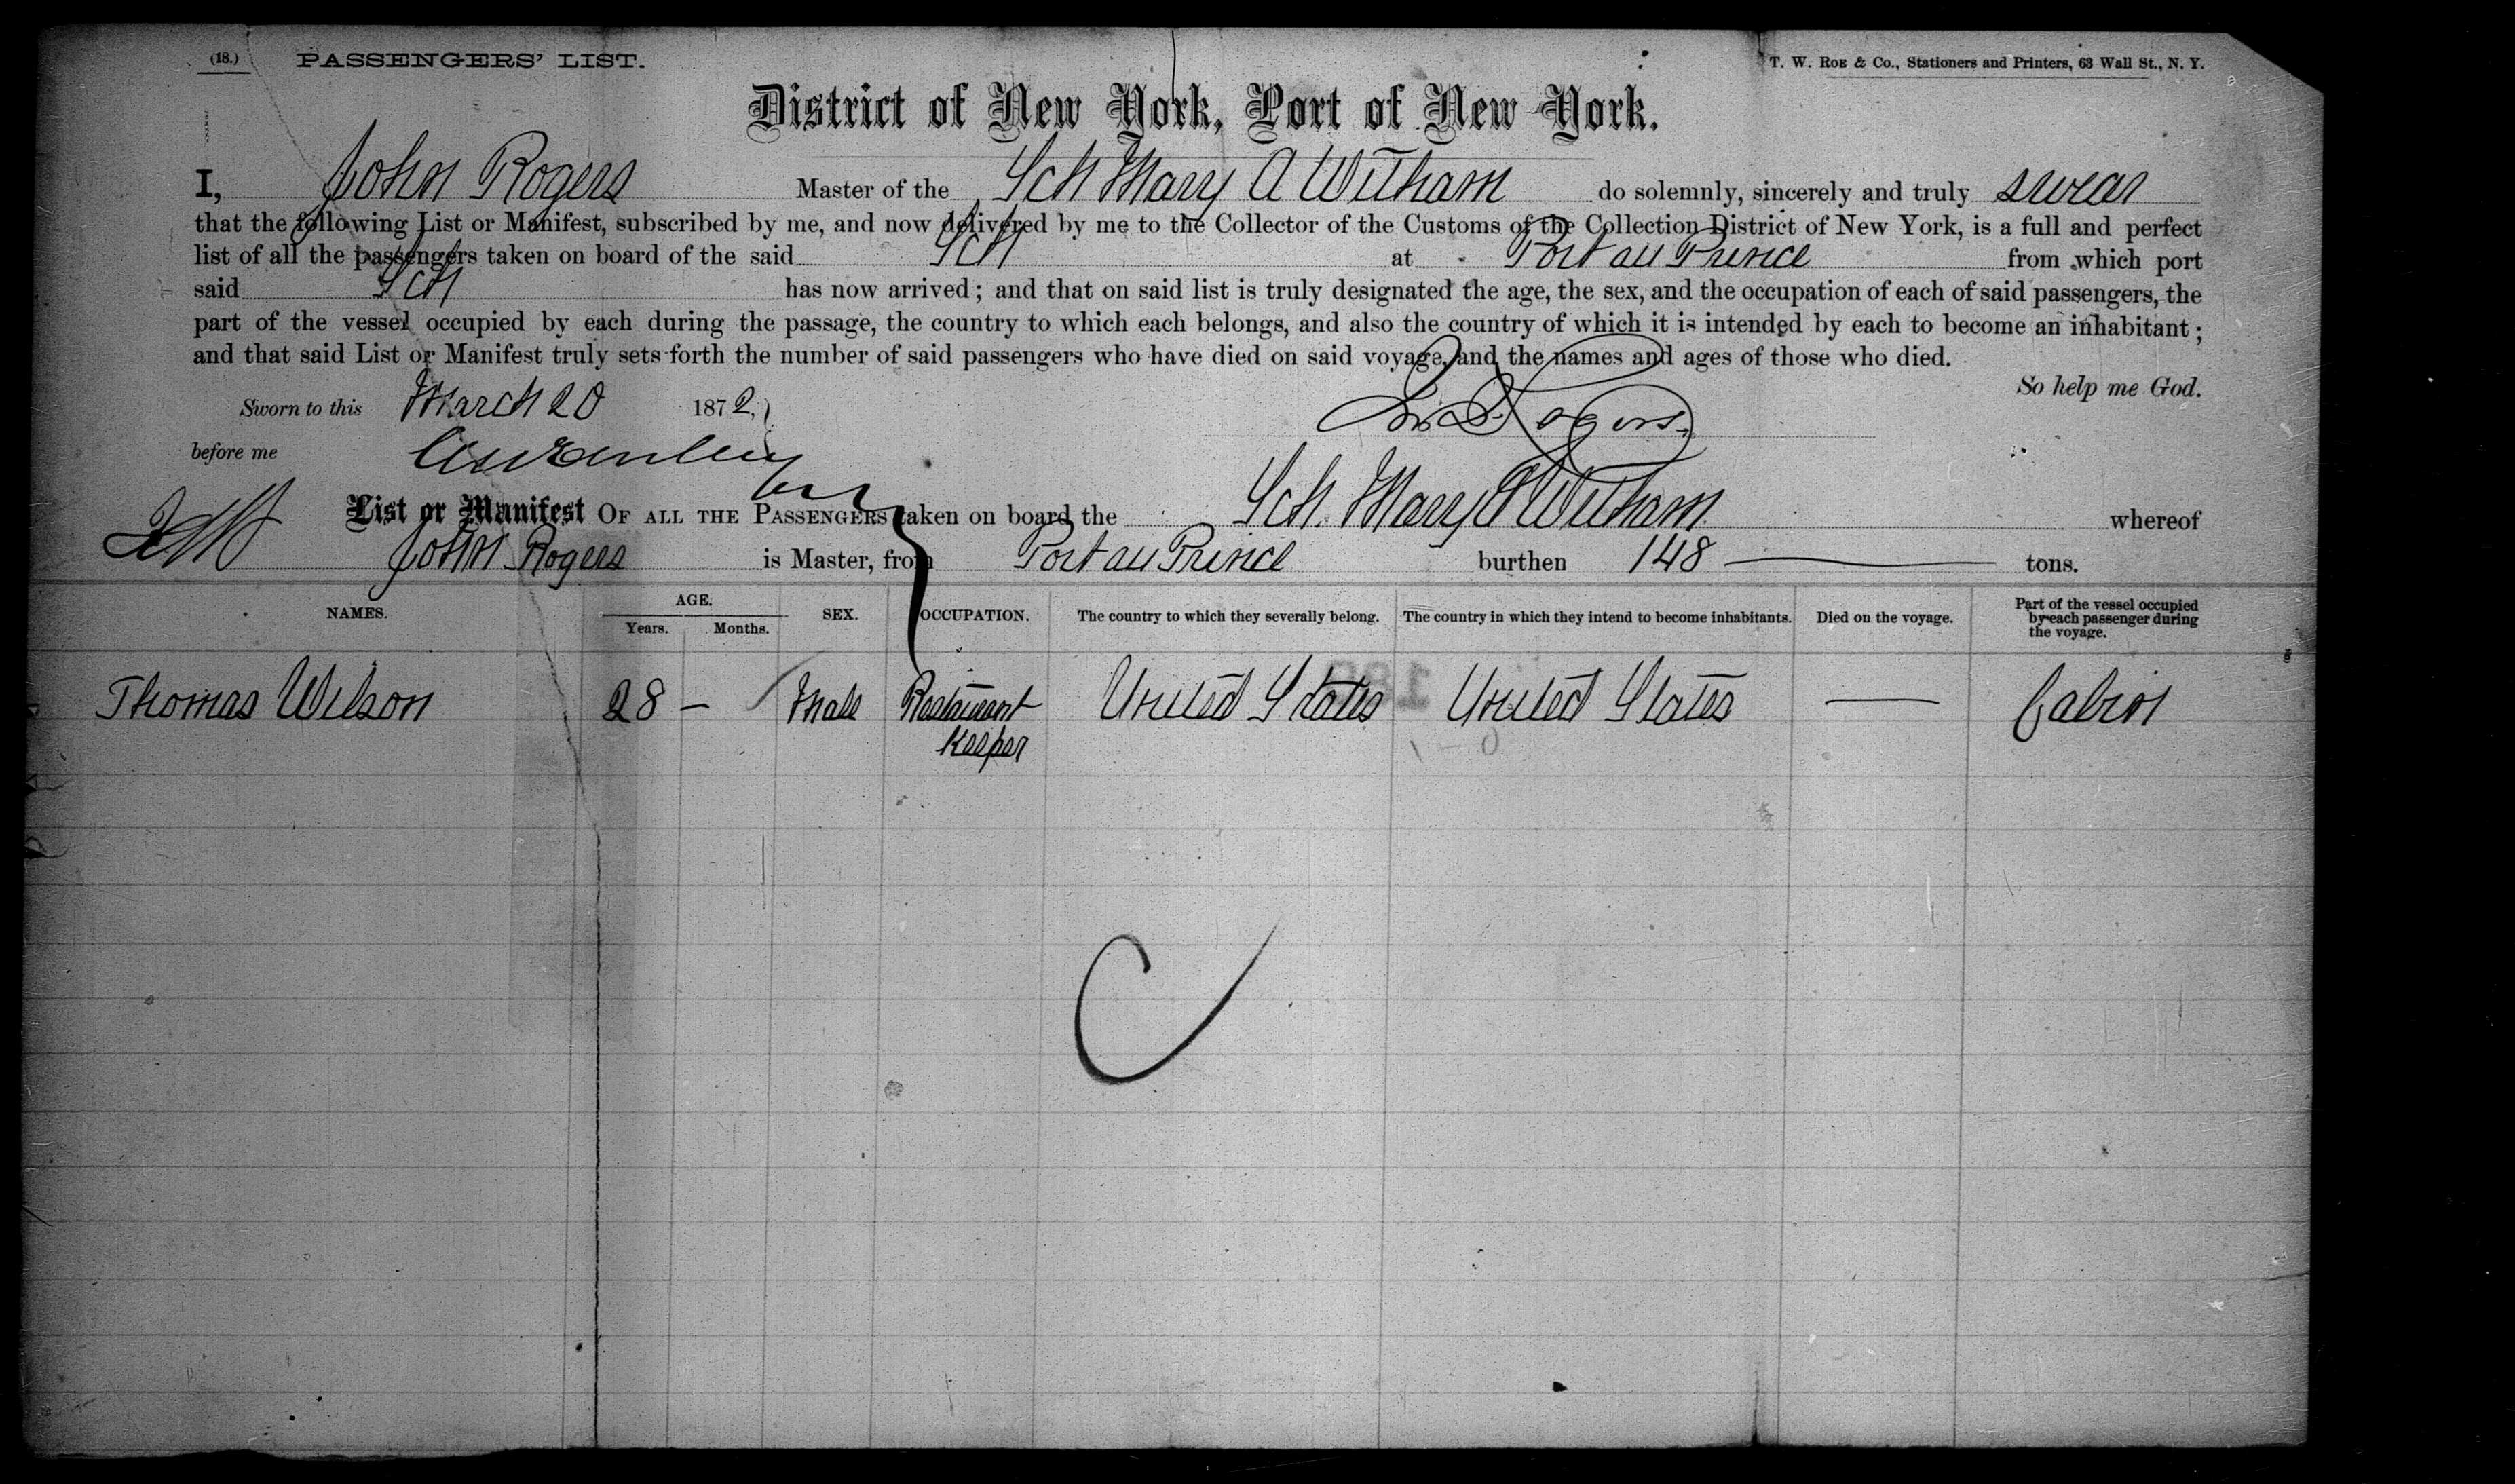 (18.) PASSENGERS' LIST. T. W. ROE & Co., Stationers and Printers, 63 Wall St., N. Y.
District of New York, Port of New York.
I, John Rogers Master of the Sch Mary A Witham do solemnly, sincerely and truly swear
that the following List or Manifest, subscribed by me, and now delivered by me to the Collector of the Customs of the Collection District of New York, is a full and perfect
list of all the passengers taken on board of the said Sch at Port au Prince from which port
said Sch has now arrived; and that on said list is truly designated the age, the sex, and the occupation of each of said passengers, the
part of the vessel occupied by each during the passage, the country to which each belongs, and also the country of which it is intended by each to become an inhabitant;
and that said List or Manifest truly sets forth the number of said passengers who have died on said voyage, and the names and ages of those who died.
So help me God.
Sworn to this March 20 1872,
Rogers
before me
List or Manifest OF ALL THE PASSENGERS taken on board the Sch. Mary A Witham whereof
John Rogers is Master, from Port au Prince burthen 148 tons.
NAMES. AGE. Years. Months. SEX. OCCUPATION. The country to which they severally belong. The country in which they intend to become inhabitants. Died on the voyage. Part of the vessel occupied by each passenger during the voyage.
Thomas Wilson 28 — Male Restaurant Keeper United States United States — Cabin